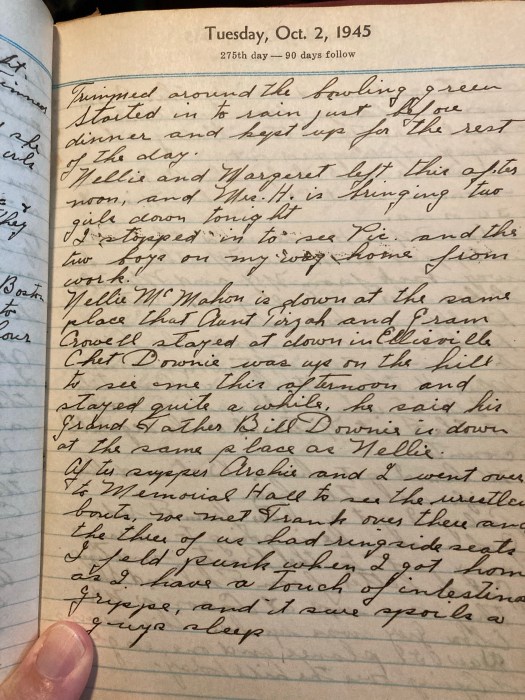 St.
she
they
Boston
to
hour
Tuesday, Oct. 2, 1945
275th day — 90 days follow
Trimmed around the bowling green
Started in to rain just before
dinner and kept up for the rest
of the day.
Nellie and Margeret left this after
noon, and Mrs. H. is bringing two
girls down tonight
I stopped in to see Pic. and the
two boys on my way home from
work.
Nellie McMahon is down at the same
place that Aunt Tirzah and Gram
Crowell stayed at down in Ellisville
Chet Downie was up on the hill
to see me this afternoon and
stayed quite a while, he said his
Grand Father Bill Downie is down
at the same place as Nellie.
After supper Archie and I went over
to Memorial Hall to see the wrestle
bouts, we met Frank over there and
the three of us had ringside seats
I feld punk when I got hom
as I have a touch of intestina
grippe, and it sure spoils a
guys sleep